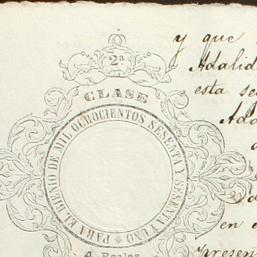 2ª
CLASE
PARA EL BIENIO DE MIL OCHOCIENTOS SESENTA Y SESENTA Y UNO
y que
Adalid
esta se
en
presen